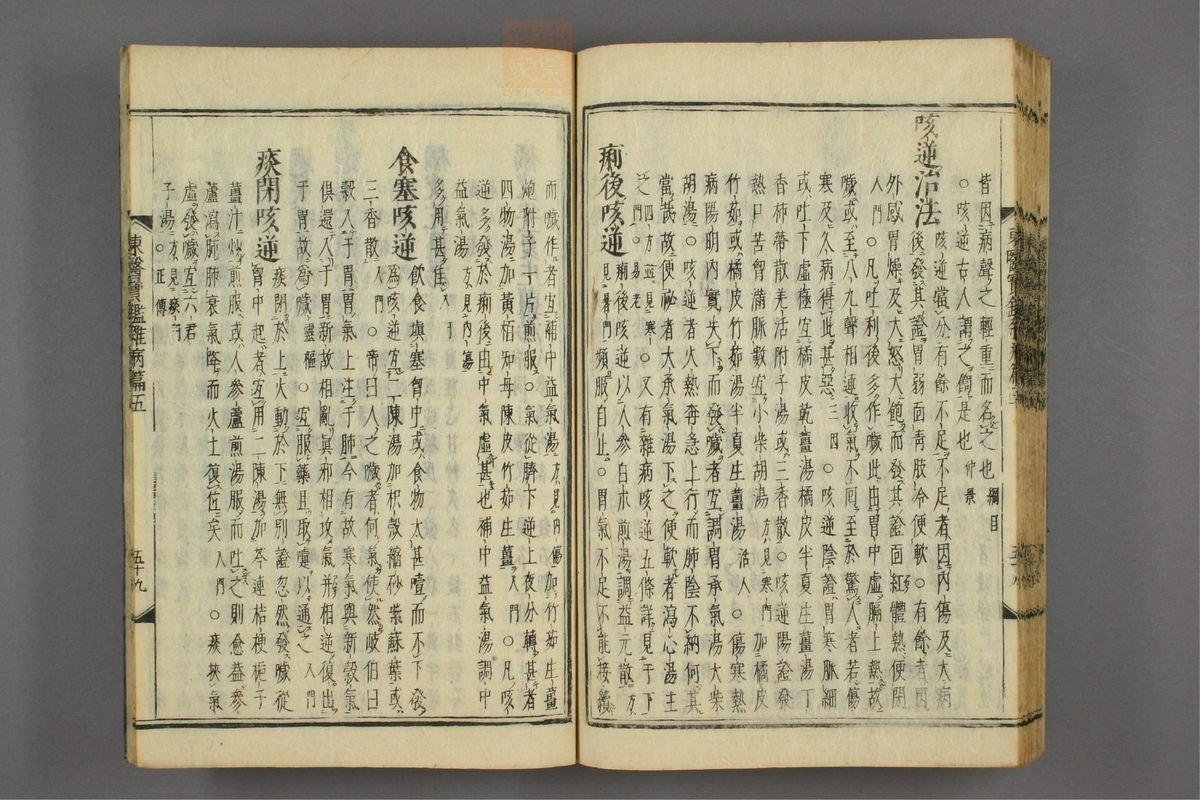 皆因病聲之輕重而名之也綱目
○咳逆古人謂之噦是也仲景
咳逆治法
咳逆當分有餘不足不足者因內傷及大病
後發其證胃弱面靑肢冷便軟○有餘者因
外感胃燥及大怒大飽而發其證面紅體熱便閉
入門○凡吐利後多作噦此由胃中虛膈上熱故
噦或至八九聲相連收氣不回至於驚人者若傷
寒及久病得此甚惡三因○咳逆陰證胃寒脉細
或吐下虛極宜橘皮乾薑湯橘皮半夏生薑湯丁
香柿蒂散羌活附子湯或三香散○咳逆陽證發
熱口苦胷滿脉數宜小柴胡湯方見寒門加橘皮
竹茹或橘皮竹茹湯半夏生薑湯活人○傷寒熱
病陽明內實失下而發噦者宜調胃承氣湯大柴
胡湯○咳逆者火熱奔急上行而肺陰不納何其
當哉故便祕者大承氣湯下之便軟者瀉心湯主
之四方並見寒門易老○又有雜病咳逆五條詳見于下
痢後咳逆
痢後咳逆以人參白朮煎湯調益元散方
見暑門頻服自止○胃氣不足不能接續
而噦作者宜補中益氣湯方見內傷加竹茹生薑
炮附子一片煎服○氣從臍下逆上夜分轉甚者
四物湯加黃栢知母陳皮竹茹生薑入門○凡咳
逆多發於痢後由中氣虛甚也補中益氣湯調中
益氣湯方見內傷
多用甚佳入門
食塞咳逆
飮食塡塞胷中或食物太甚噎而不下發
爲咳逆宜二陳湯加枳殼縮砂紫蘇葉或
三香散入門○帝曰人之噦者何氣使然岐伯曰
穀入于胃胃氣上注于肺今有故寒氣與新穀氣
俱還入于胃新故相亂眞邪相攻氣幷相逆復出
于胃故爲噦靈樞○宜服藥且取嚔以通之入門
痰閉咳逆
痰閉於上火動於下無別證忽然發噦從
胷中起者宜用二陳湯加芩連桔梗梔子
薑汁炒煎服或人參蘆煎湯服而吐之則愈盖參
蘆瀉肺肺衰氣降而火土復位矣入門○痰挾氣
虛發噦宜六君
子湯方見痰門○正傳
東醫寶鑑雜病篇五
五十九